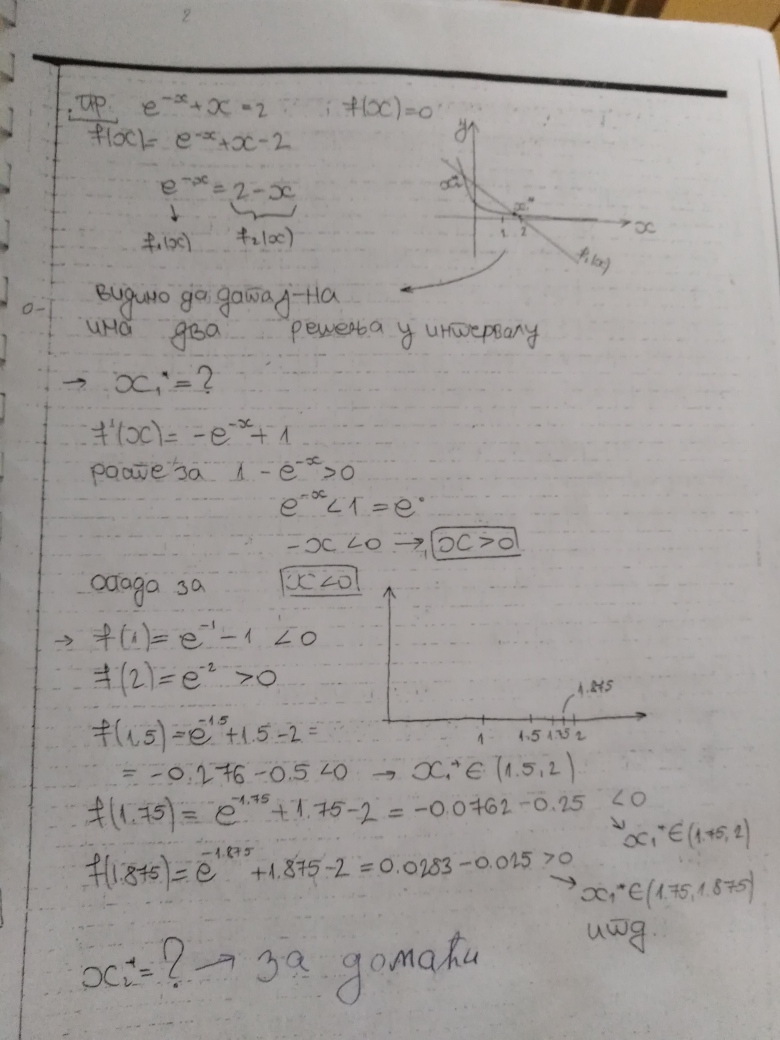 пр. e^{-x}+x=2 ; f(x)=0
f(x)= e^{-x}+x-2
e^{-x} = 2-x
f₁(x) f₂(x)
y
x₂*
x*
1 2
x
f₂(x)
видимо да дата ј-на
има два решења у интервалу
→ x₁* = ?
f'(x)= -e^{-x}+1
расте за 1 - e^{-x}>0
e^{-x}<1 = e°
-x<0 → x>0
опада за x<0
→ f(1)= e^{-1}-1 <0
f(2)= e^{-2} >0
1.875
1 1.5 1.75 2
f(1.5)= e^{-1.5}+1.5-2=
= -0.276-0.5<0 → x₁* ∈ (1.5,2)
f(1.75)= e^{-1.75}+1.75-2 = -0.0762-0.25 <0
→ x₁* ∈ (1.75,2)
f(1.875)= e^{-1.875}+1.875-2 = 0.0283-0.025 >0
→ x₁* ∈ (1.75,1.875)
итд.
x₂* = ? → за домаћи